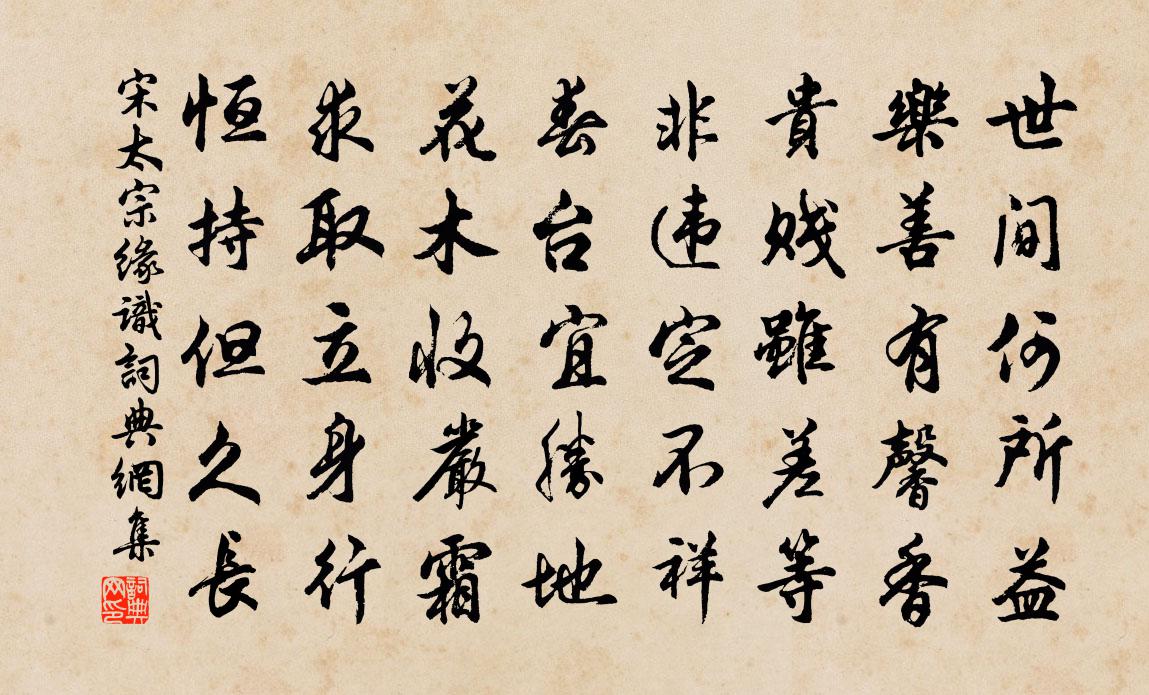 世間何所益
樂善有馨香
貴賤雖差等
非违定不祥
春台宜勝地
花木收嚴霜
求取立身行
恒持但久長
宋太宗緣識詞典網集
詞典
网印